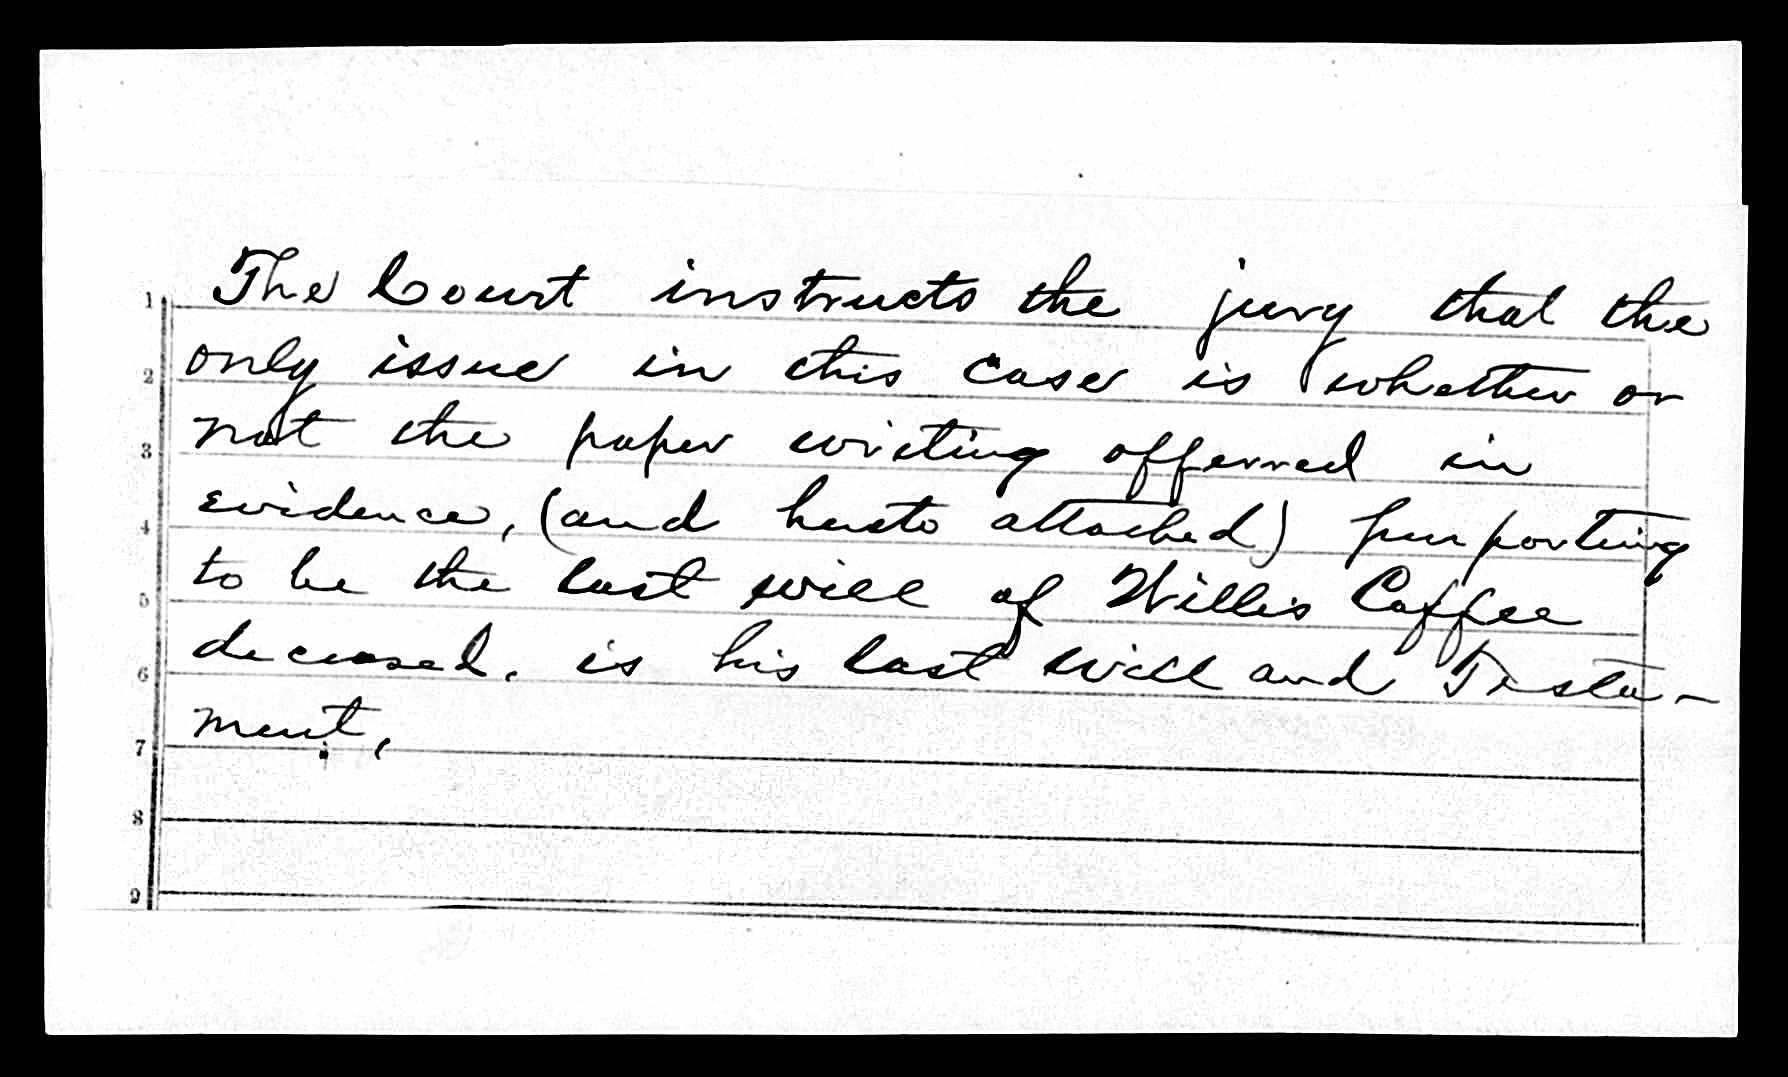 The Court instructs the jury that the
1
only issue in this case is whether or
2
not the paper writing offerred in
3
evidence, (and hereto attached) purporting
4
to be the last will of Willis Coffee
5
deceased. is his last will and Testa-
6
ment.
7
8
9